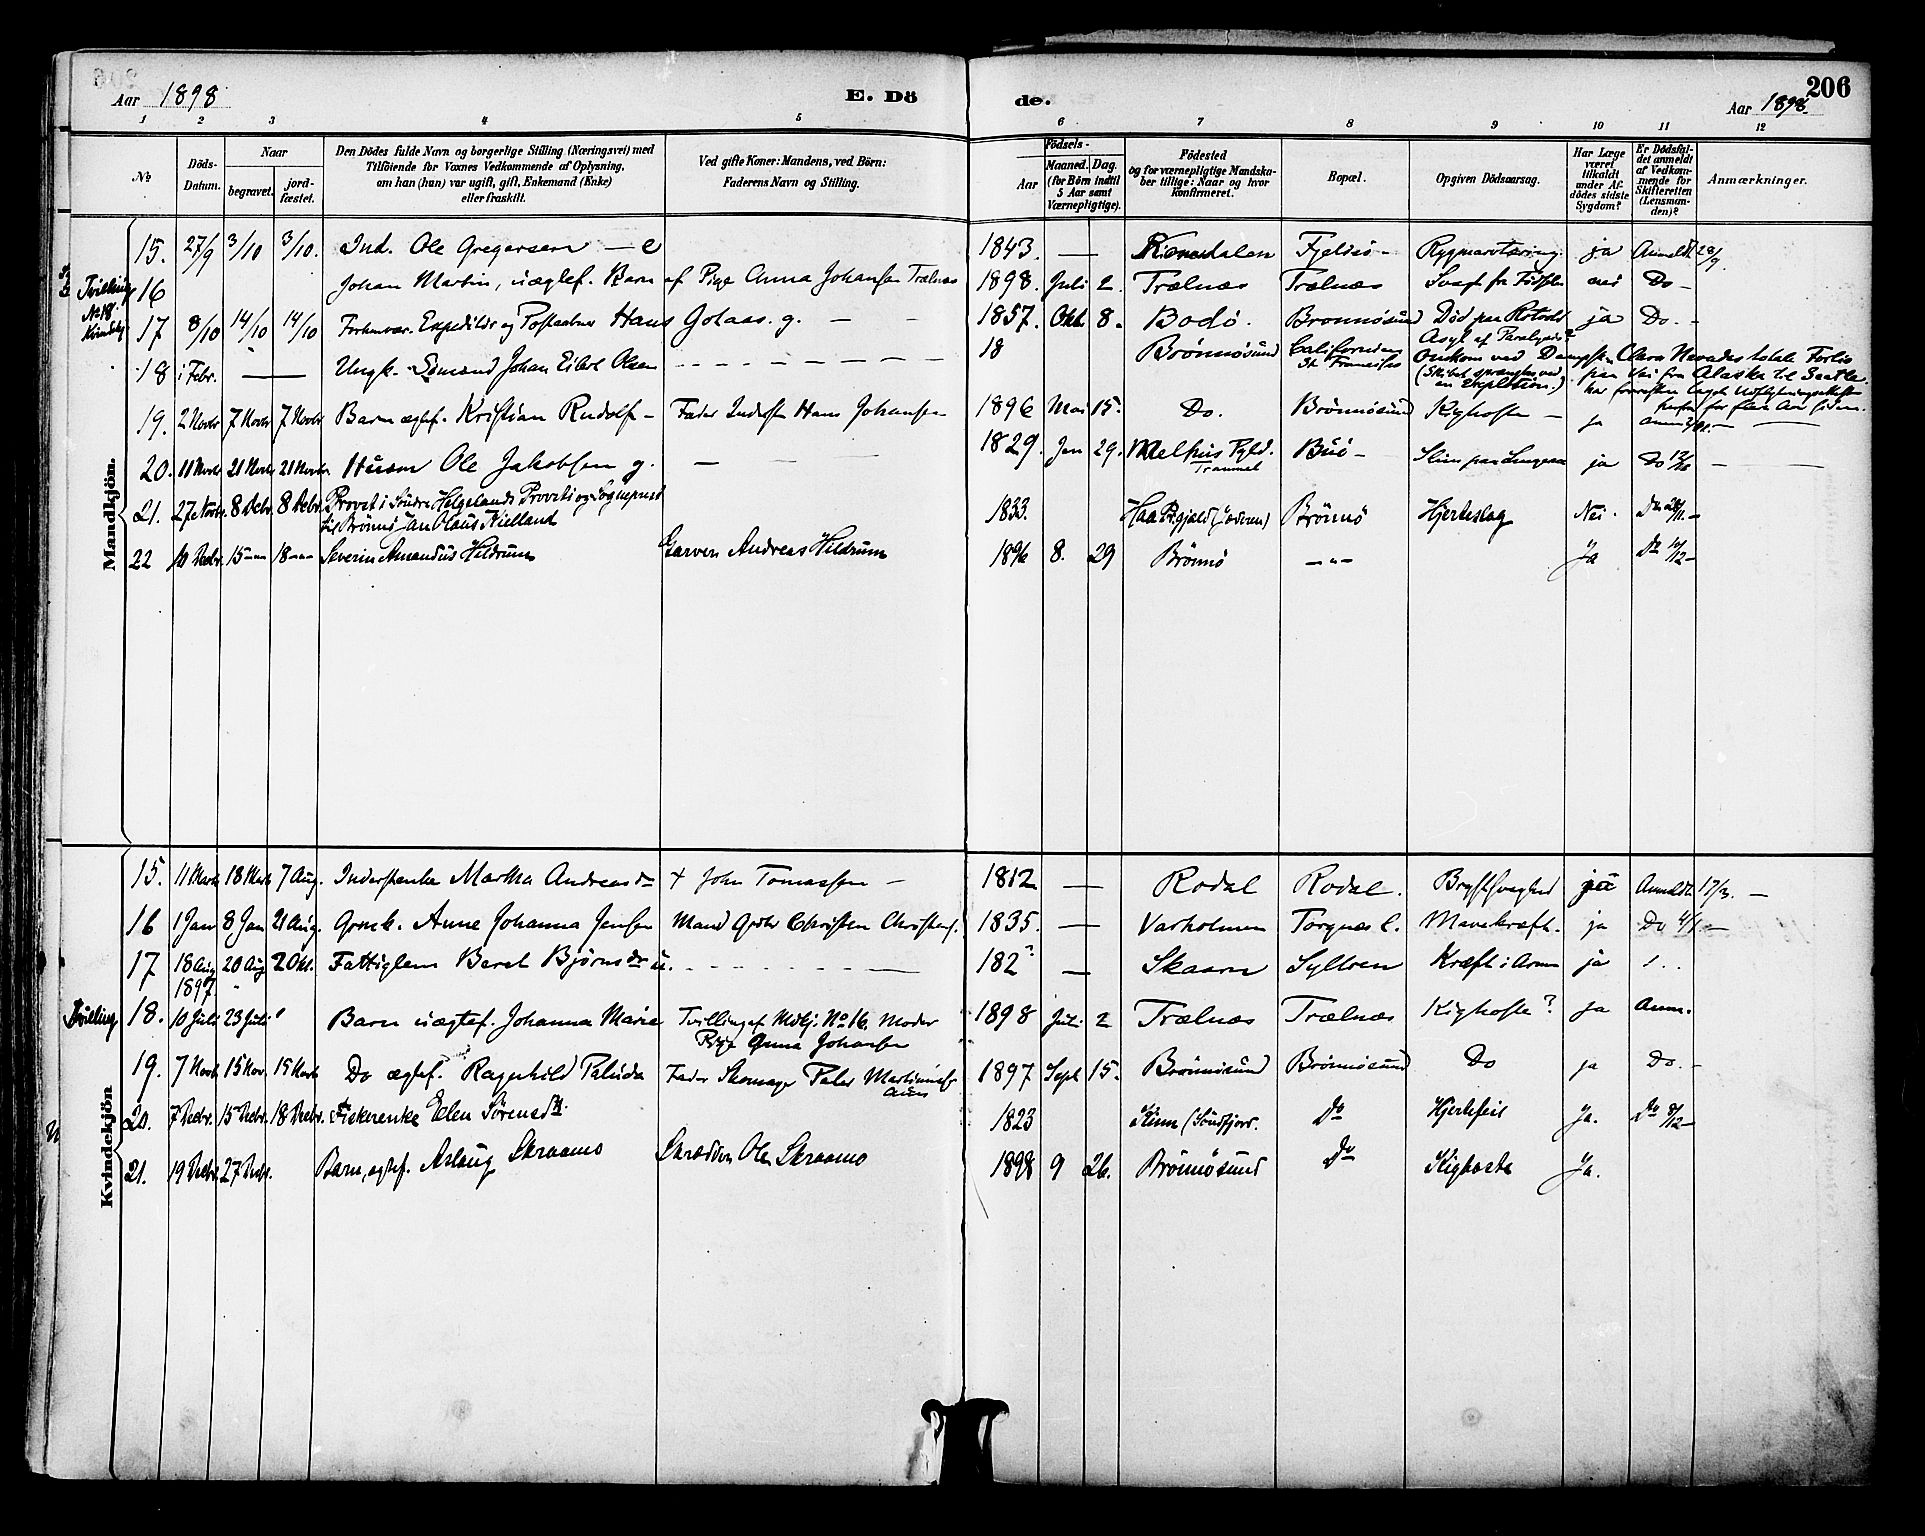 Aar 1898
E. Dö
de.
206
Aar 1898.
1 2 3 4 5 6 7 8 9 10 11 12
No
Döds-Datum.
Naar
begravet.
jord-fæstet.
Den Dödes fulde Navn og borgerlige Stilling (Næringsvei) med
Tilföiende for Voxnes Vedkommende af Oplysning,
om han (hun) var ugift, gift, Enkemand (Enke)
eller fraskilt.
Ved gifte Koner: Mandens, ved Börn:
Faderens Navn og Stilling.
Födsels-
Aar
Maaned.
Dag.
(for Börn indtil
5 Aar samt
Værnepligtige).
Födested
og for værnepligtige Mandska-
ber tillige: Naar og hvor
konfirmeret.
Bopæl.
Opgiven Dödsaarsag.
Har Læge
været
tilkaldt
under Af-
dödes sidste
Sygdom?
Er Dödsfal-
det anmeldt
af Vedkom-
mende for
Skifteretten
(Lensman-
den)?
Anmærkninger.
Mandkjön.
15. 27/9 3/10 3/10. Ind. Ole Gregersen — e 1843. — Fjeldsö - Rygmarvtæring ja Anmeldt 28/9.
Tvilling No 18. Kvindekj.
16 Johan Martin, uægtef. Barn af Pige Anna Johansen Trælnæs 1898. Juli 2. Trælnæs Trælnæs Svagh. fra Födselen nei Do -
17 8/10 14/10 14/10 Forhenvær. Expeditör og Postaabner Hans Golaas. g. — — 1857. Okt. 8. Bodö. Brönnösund Död paa Rotvold Asyl af Paralysis? ja Do. -
18 i Febr. — Ungk. Edmund Johan Eibert Olsen 18 Brönnösund Californien St. Francisco Omkom ved Dampsk. Clara Nevadas totale Forlis
(Skibet sprængtes ved en Explosion.) paa Vei fra Alaska til Seatle.
har forresten taget Udflytningsattest
herfra for flere Aar siden.
19. 2 Novbr 7 Novbr 7 Novbr Barn ægtef. Kristian Rudolf - Fader Inderst Hans Johansen 1896 Mai 15. Do. Brönnösund Kighoste — ja
20. 11 Novbr 21 Novbr 21 Novbr Husm Ole Jakobsen g. — 1829. Jan 29. Melhus Pgld. Buö - ja Do
21. 27 Novbr. 8 Debr. 8 Debr. Provst i Söndre Helgelands Provsti og Sogneprest
til Brönnö Jan Olaus Kielland 1833. Haa Pr.gjeld (Jædren) Brönnö Hjerteslag Nei. Do 28/11. -
22 10 Decbr. 15 — 18 — Severin Amandus Hildrum Garver Andreas Hildrum 1896 8. 29 Brönnö — " — Ja Do 10/12 -
Kvindekjön
15. 11 Marts 18 Marts 7 Aug. Inderstenke Martha Andreasdr + John Tomassen - 1812 — Rodal Rodal. Brystsvaghed ja Anmeldt 17/3. —
16 1 Jan 8 Jan 21 Aug. Grmk. Anne Johanna Jensen Mand Grdbr Christen Christens. 1835. — Varholmen Torgnæs l. Mavekræft. ja Do 4/1 -
17 18 Aug 1897. 20 Aug 2 Okt. Fattiglem Beret Björnsdr u. 182? — Skaaren Sylteren Kræft i Armen ja
Tvilling
18. 10 Juli 23 Juli " Barn uægtef. Johanna Marie Tvilling af Mdkj. No 16. Moder
Pige Anna Johansen 1898 Juli 2 Trælnæs Trælnæs Kighoste? ja Anm.
19. 7 Novbr 15 Nov. 15 Do ægtef. Ragnhild Palude Fader Skomager Peter Martinius
1897 Sept 15. Brönnösund Brönnösund Do ja Do. -
20. 7 Decbr. 15 Decbr. 18 Decbr. Fiskerenke Elen Sörensdtr. 1823 Kinn (Söndfjord. Do Hjertefeil Ja. Do 8/12 -
21. 19 Decbr. 27 Decbr. Barn, ægtef. Aslaug Skraamo Skrædder Ole Skraamo 1898 9 26. Brönnösund Do Kighoste Ja.